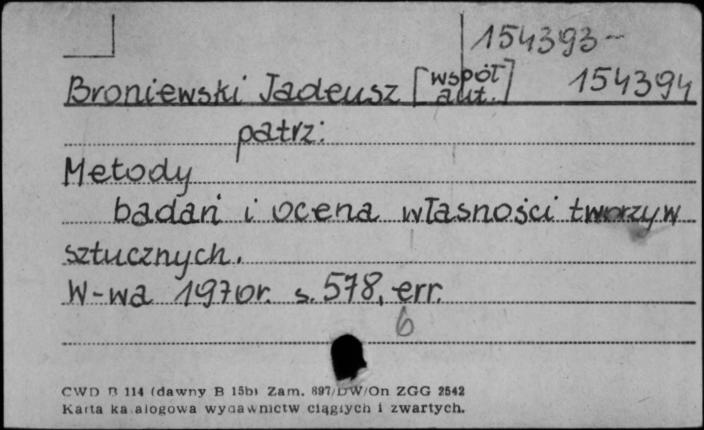 154393-
Broniewski Tadeusz [współ aut.] 154394
patrz:
Metody
badań i ocena własności tworzyw
sztucznych.
W-wa 1970r. s. 578, err.
6
CWD B 114 (dawny B 15b) Zam. 897/DW/On ZGG 2542
Karta katalogowa wydawnictw ciągłych i zwartych.